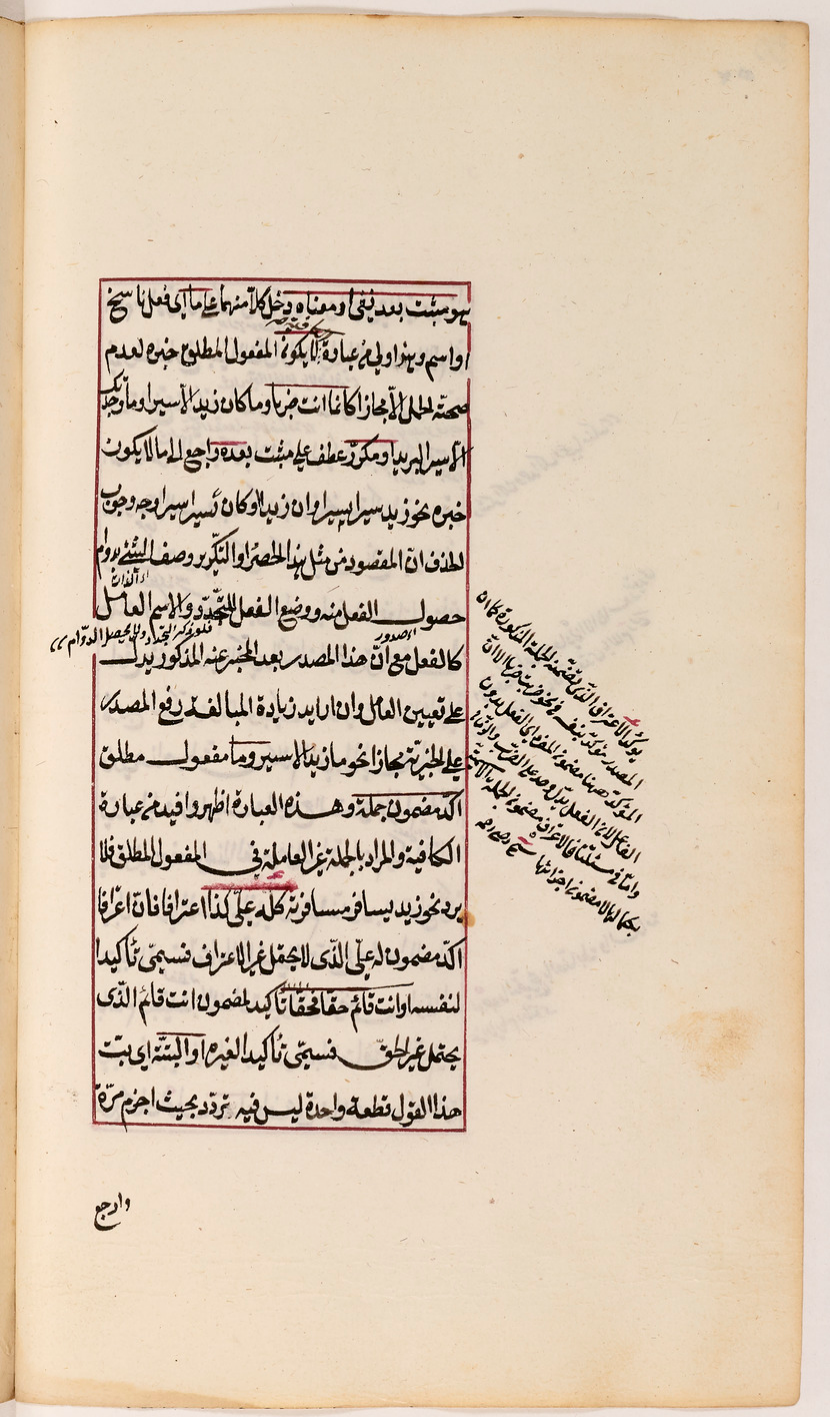 هو مثبت بعد نفى او معناه دخل كلا منهما على ما اى فعل ناسخ
او اسم وهذا اولى من عبارة لا يكون المفعول المطلق خبره لعدم
صحته الحمل الا مجازا كما ما انت ضربا وما كان زيد الا سيرا وما وجدتك
الا سير البريد او مكرر عطف على مثبت بعده راجع الى ما لا يكون
خبره نحو زيد سيرا يسيرا وان زيدا او كان سيرا سيرا وجه وجوب
الحذف ان المقصود من مثل هذا الحصر او التكرير وصف الشئ بدوام
حصول الفعل منه ووضع الفعل للتجدد والاسم العامل
كالفعل مع ان هذا المصدر بعد المخبر عنه المذكور يدل
على تعيين العامل وان اريد زيادة المبالغة رفع المصدر
على الخبرية مجازا نحو ما زيد الا سير وما مفعول مطلق
اكد مضمون جملة وهذه العبارة اظهر وافيد من عبارة
الكافية والمراد بالجملة غير العاملة فى المفعول المطلق فلا
يرد نحو زيد يسافر مسافرة كله على كذا اعترافا فان اعترافا
اكد مضمون له على الذى لا يحتمل غير الاعتراف فسمى تأكيدا
لنفسه او انت قائم حقا فحقا تأكيد لمضمون انت قائم الذى
يحتمل غير الحق فسمى تأكيدا لغيره او البتة اى بتت
هذا القول قطعة واحدة ليس فيه تردد بحيث اجزم مرة
وارجع
يؤكد الاعتراف الذى تضمنه الجملة المذكورة كما ان
المصدر مؤكد بنفسه فى نحو ضربت ضربا الا ان
المؤكد ههنا مضمون المفرد اى الفعل بدون
الفاعل لان الفعل يدل وحده على الضرب والزمان
واما فى مسئلتنا فالاعتراف مضمون الجملة الاسمية
بكمالها لا مضمون اجزائها